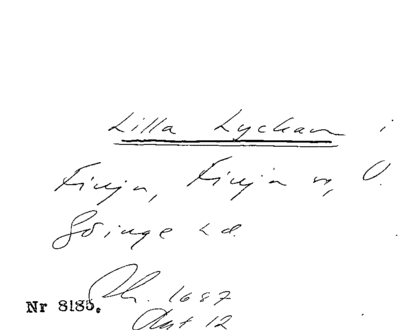 Lilla Lyckan i
Finja, Finja sn, V.
Göinge hd.
Nr 8185.
1687
Akt 12